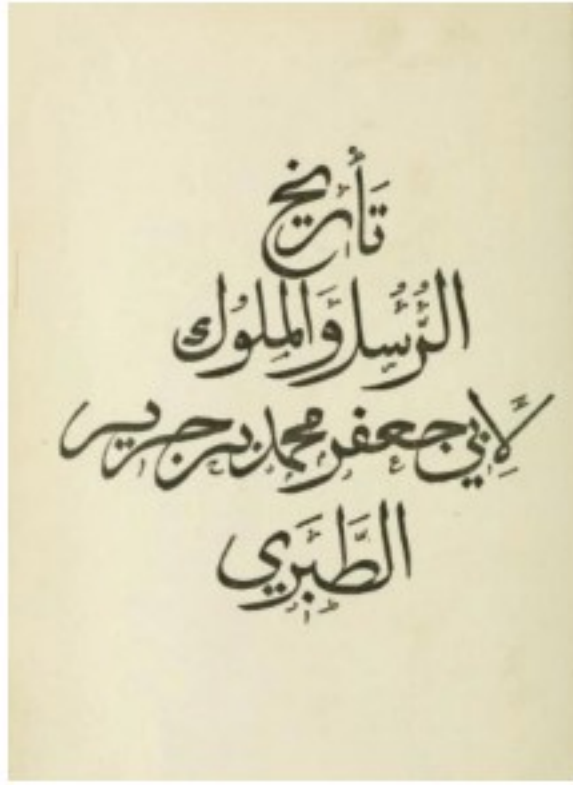 تَأريخ
الرُّسُل وَالملُوك
لِأَبي جعفر محمد بن جرير
الطَّبَري